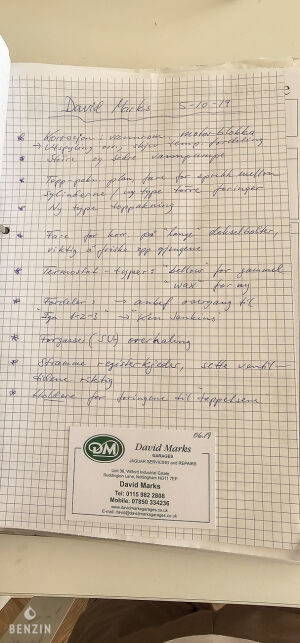 David Marks 5-10-19
* Korrosjon: vannrom, motorblokka
→ Utspyling osv, skjev temp. fordeling
* Større og bedre vannpumpe
* Topp-pakn. plan, fare for sprekk mellom
sylinderne / ny type tørre foringer
* Ny type toppakning
* Fare for korr. på "lange" dekselbolter,
viktig å friske opp gjengene
* Termostat-typer: "bellow" for gammel
"wax" for ny
* Fordeler: → anbef. overgang til
"1-2-3" → "Ken Jenkins"
* Forgasser (SU) overhaling
* Stramme registerkjeder, sette ventil-
tidene riktig
* for foringene til
06.19
DM
David Marks
GARAGES
JAGUAR SERVICING and REPAIRS
Unit 36, Wilford Industrial Estate
Ruddington Lane, Nottingham NG11 7EP
David Marks
Tel: 0115 982 2808
Mobile: 07850 334236
www.davidmarksgarages.co.uk
E-mail: david@davidmarksgarages.co.uk
BENZIN